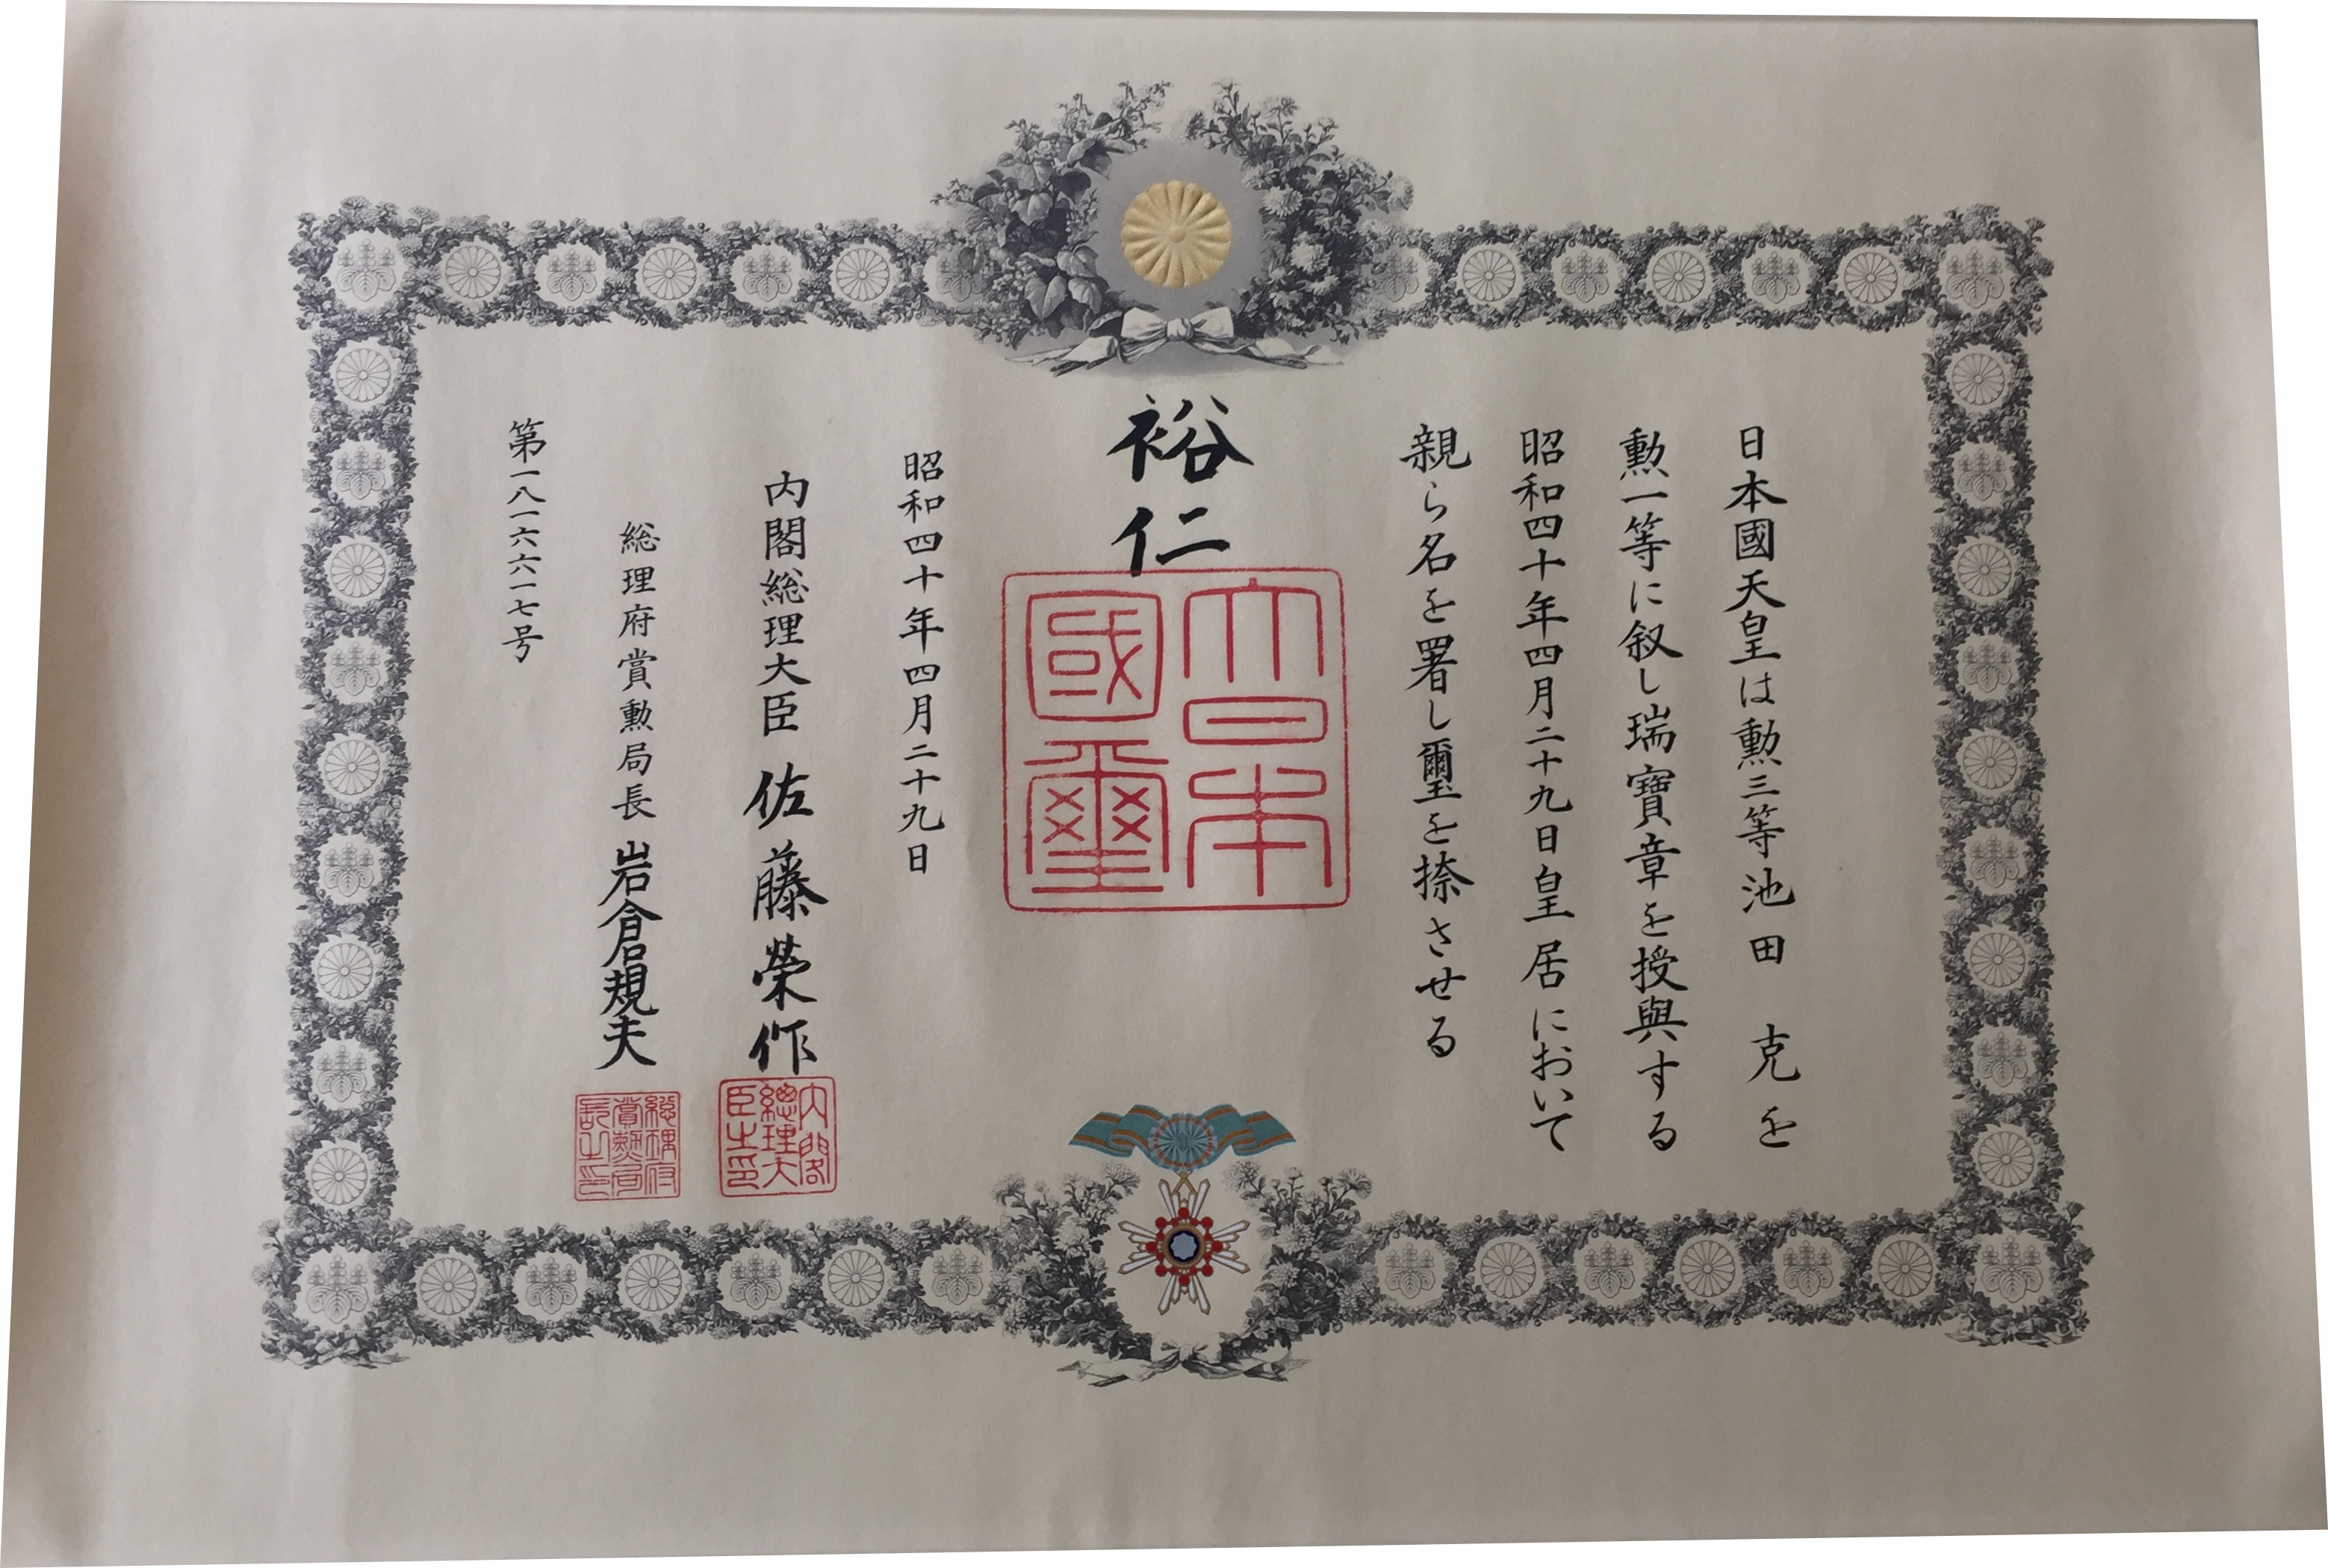 日本國天皇は勲三等池田 克を
勲一等に叙し瑞寶章を授與する
昭和四十年四月二十九日皇居において
親ら名を署し璽を捺させる
裕仁
大日本
國璽
昭和四十年四月二十九日
内閣総理大臣 佐藤榮作
内閣
總理大
臣之印
総理府賞勲局長 岩倉規夫
総理府
賞勲局
長之印
第一八一六六一七号